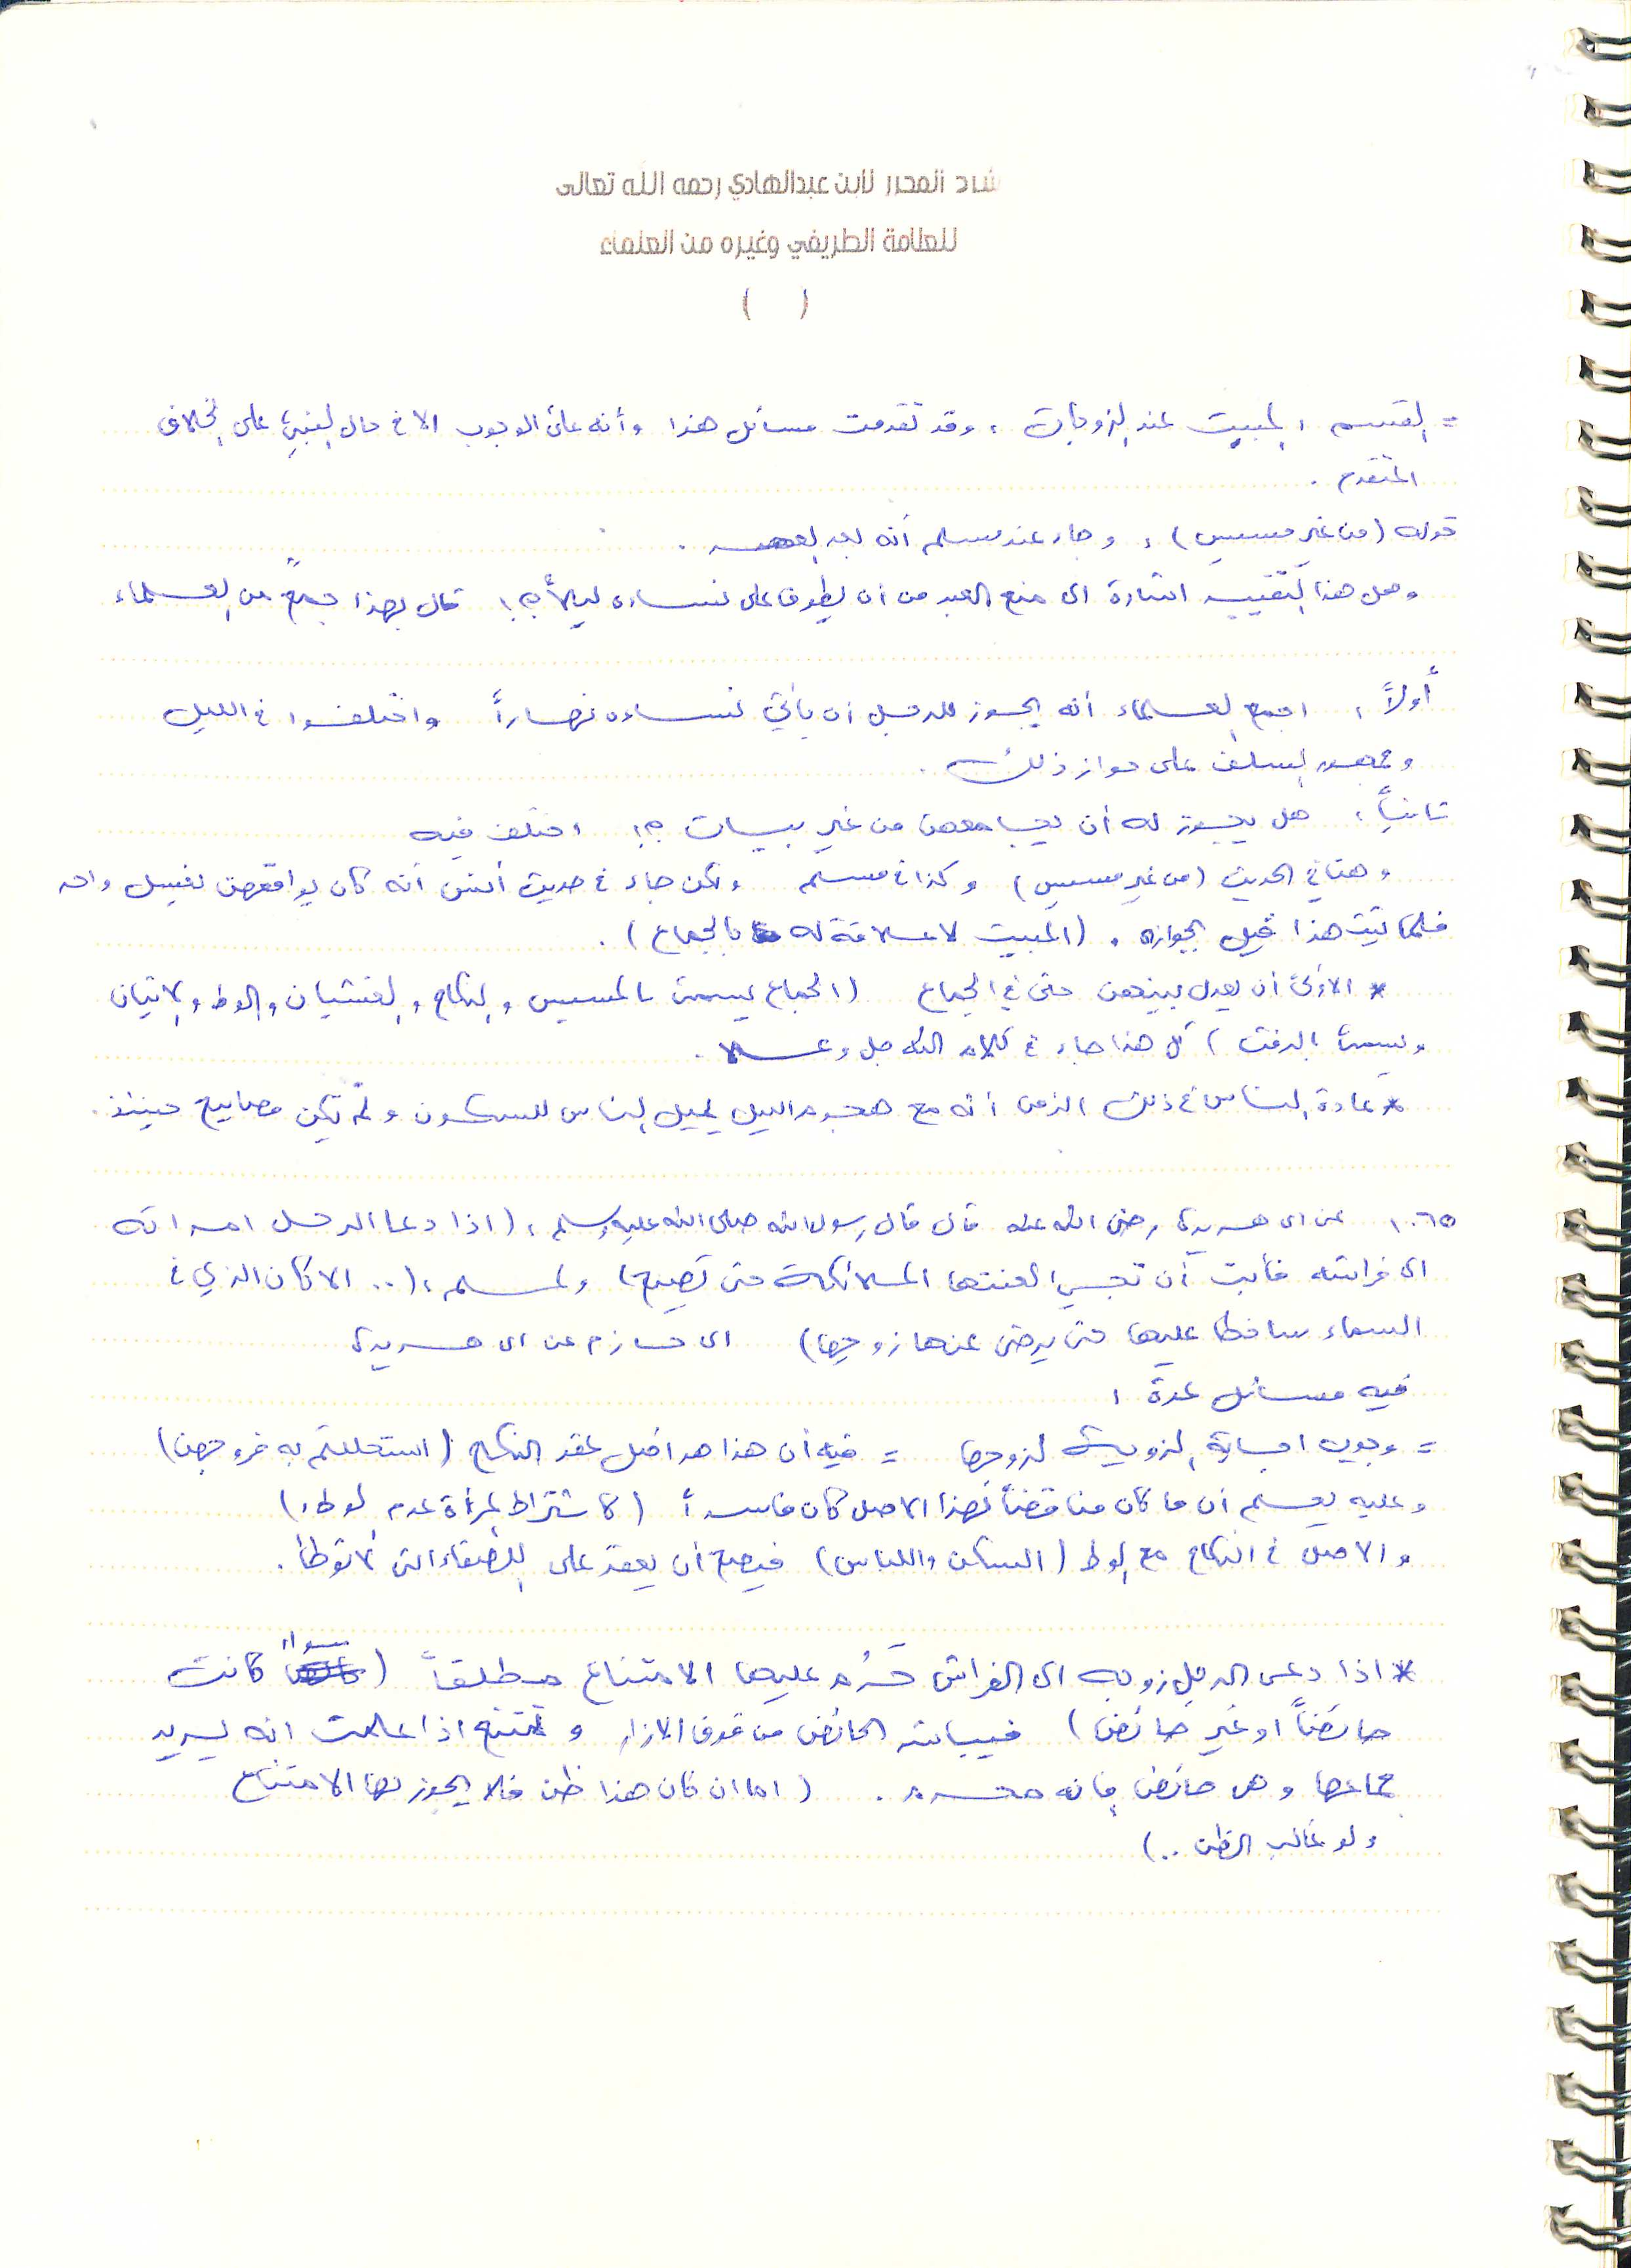 شرح المحرر لابن عبدالهادي رحمه الله تعالى
للعلامة الطريفي وغيره من العلماء
( )
= القسم : المبيت عند الزوجات ، وقد تقدمت مسائل هذا وأنه على الوجوب الا في حال النبي على الخلاف
المتقدم .
قوله (من غير مسيس) ، وجاء عند مسلم أنه بعد العصر .
وهل هذا التقييد اشارة الى منع العبد من ان يطوف على نساءه ليلاً ؟! قال بهذا جمعٌ من العلماء
أولاً : اجمع العلماء أنه يجوز للرجل ان يأتي نساءه نهاراً واختلفوا في الليل
وجمهور السلف على جواز ذلك .
ثانياً : هل يجوز له أن يجامعهن من غير بيات ؟! اختلف فيه
وهنا في الحديث (من غير مسيس) وكذا في مسلم ولكن جاء في حديث أنس أنه كان يواقعهن بغسل واحد
فلما ثبت هذا قيل بجوازه . (المبيت لا علاقة له بالجماع) .
* الأولى أن يعدل بينهن حتى في الجماع (الجماع يسمى بالمسيس والنكاح والغشيان والوطء والاتيان
ويسمى بالرفث) كل هذا جاء في كلام الله جل وعلا .
* عادة الناس في ذلك الزمن أنه مع هجوم الليل يميل الناس للسكون ولم تكن مصابيح حينئذ .
١٠٦٥ عن ابي هريرة رضي الله عنه قال قال رسول الله صلى الله عليه وسلم : (اذا دعا الرجل امراته
الى فراشه فأبت أن تجيء لعنتها الملائكة حتى تصبح) ولمسلم : (.. الا كان الذي في
السماء ساخطا عليها حتى يرضى عنها زوجها) ابي حازم عن ابي هريرة
فيه مسائل عدة :
= وجوب اجابة الزوجة لزوجها = فيه أن هذا هو اصل عقد النكاح (استحللتم به فروجهن)
وعليه يعلم أن ما كان مناقضاً لهذا الاصل كان فاسداً (كاشتراط المرأة عدم الوطء)
والاصل في النكاح مع الوطء (السكن واللباس) فيصح أن يعقد على الرتقاء التي لا توطأ .
* اذا دعى الرجل زوجه الى الفراش حَرُم عليها الامتناع مطلقاً (سواءً كانت
حائضاً او غير حائض) فيباشر الحائض من فوق الازار وتمتنع اذا علمت انه يريد
جماعها وهي حائض فانه محرم . (اما ان كان هذا ظن فلا يجوز لها الامتناع
ولو غالب الظن ..)